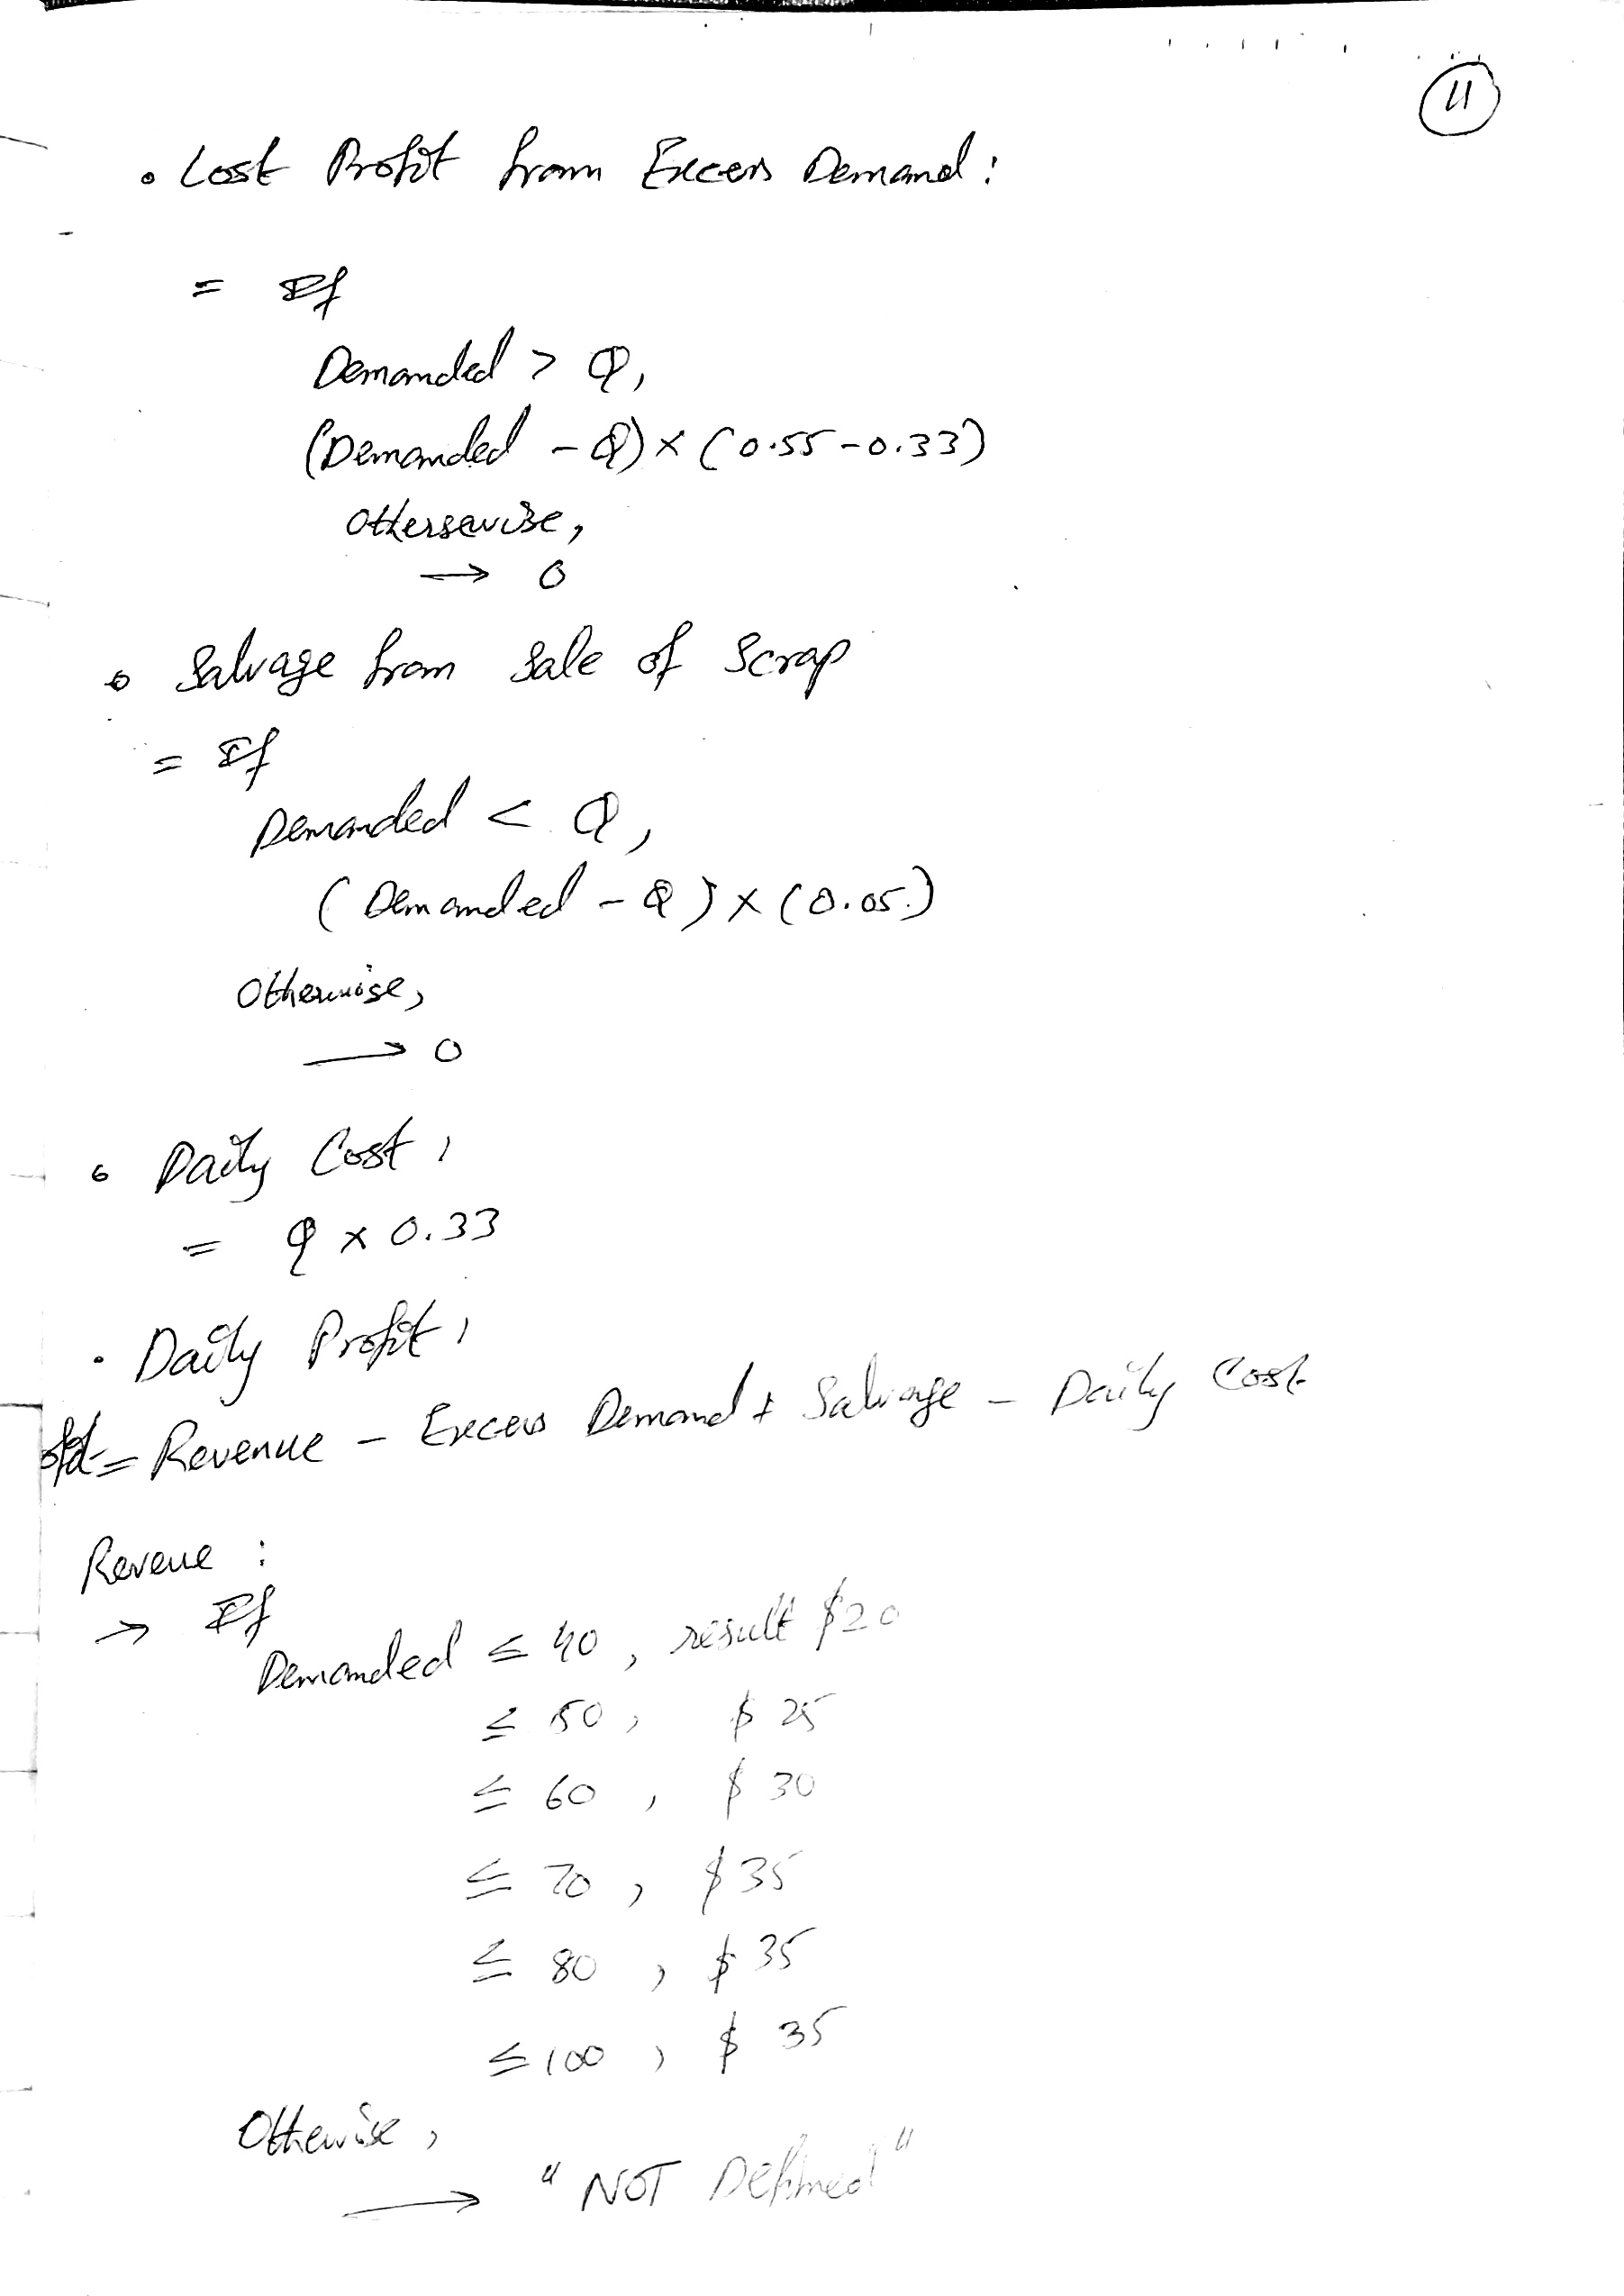 11
• Lost Profit from Excess Demand:
= If
Demanded > Q,
(Demanded - Q) × (0.55-0.33)
Otherswise,
→ 0
• Salvage from Sale of Scrap
= If
Demanded < Q,
(Demanded - Q) × (0.05)
Otherwise,
→ 0
• Daily Cost,
= Q × 0.33
• Daily Profit,
= Revenue - Excess Demand + Salvage - Daily Cost
Reveue :
→ If
Demanded ≤ 40, result $20
≤ 50, $ 25
≤ 60, $ 30
≤ 70, $ 35
≤ 80, $ 35
≤ 100, $ 35
Otherwise,
→ "NOT Defined"